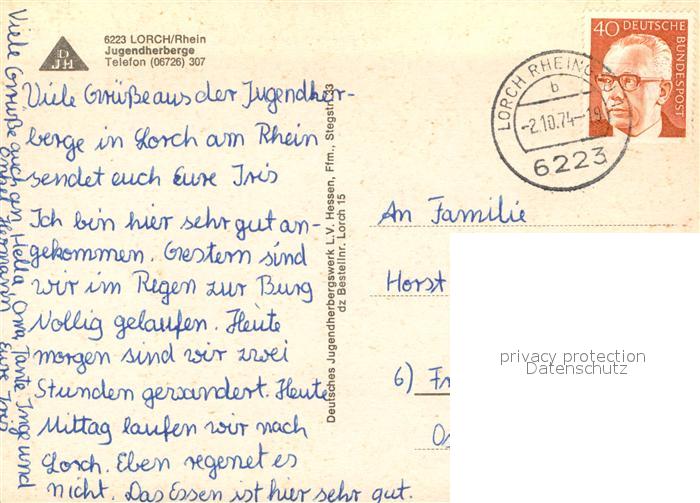 DJH
6223 LORCH/Rhein
Jugendherberge
Telefon (06726) 307
Viele Grüße aus der Jugendher-
berge in Lorch am Rhein
sendet euch Eure Iris
Ich bin hier sehr gut an-
gekommen. Gestern sind
wir im Regen zur Burg
Nollig gelaufen. Heute
morgen sind wir zwei
Stunden gewandert. Heute
Mittag laufen wir nach
Lorch. Eben regenet es
nicht. Das Essen ist hier sehr gut.
Viele Grüße auch an Hella, Oma, Tante Inge und
Onkel Hermann Eure Iris
Deutsches Jugendherbergswerk L.V. Hessen, Ffm., Stegstr. 33
dz Bestellnr. Lorch 15
40 DEUTSCHE
BUNDESPOST
LORCH RHEING
b
-2.10.74-19
6223
An Familie
Horst
6) Fr
privacy protection
Datenschutz